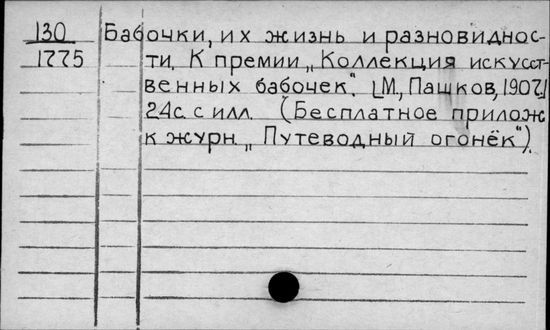 130
1775
Бабочки, их жизнь и разновиднос-
ти. К премии „Коллекция искусст-
венных бабочек". [М., Пашков, 1907]
24с. с илл. (Бесплатное прилож
к журн. „Путеводный огонёк").